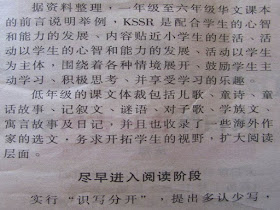 据资料整理，一年级至六年级华文课本
的前言说明举例，KSSR 是配合学生的心智
和能力的发展、内容贴近小学生的生活、活
动以学生的心智和能力的发展、活动以学生
为主体，围绕着各种情境展开、鼓励学生主
动学习、积极思考、并享受学习的乐趣。
低年级的课文体裁包括儿歌、童诗、童
话故事、记叙文、谜语、对子歌、学族文、
寓言故事及日记，并且也收录了一些海外作
家的选文，务求开拓学生的视野，扩大阅读
层面。
尽早进入阅读阶段
实行“识写分开”，提出多认少写，